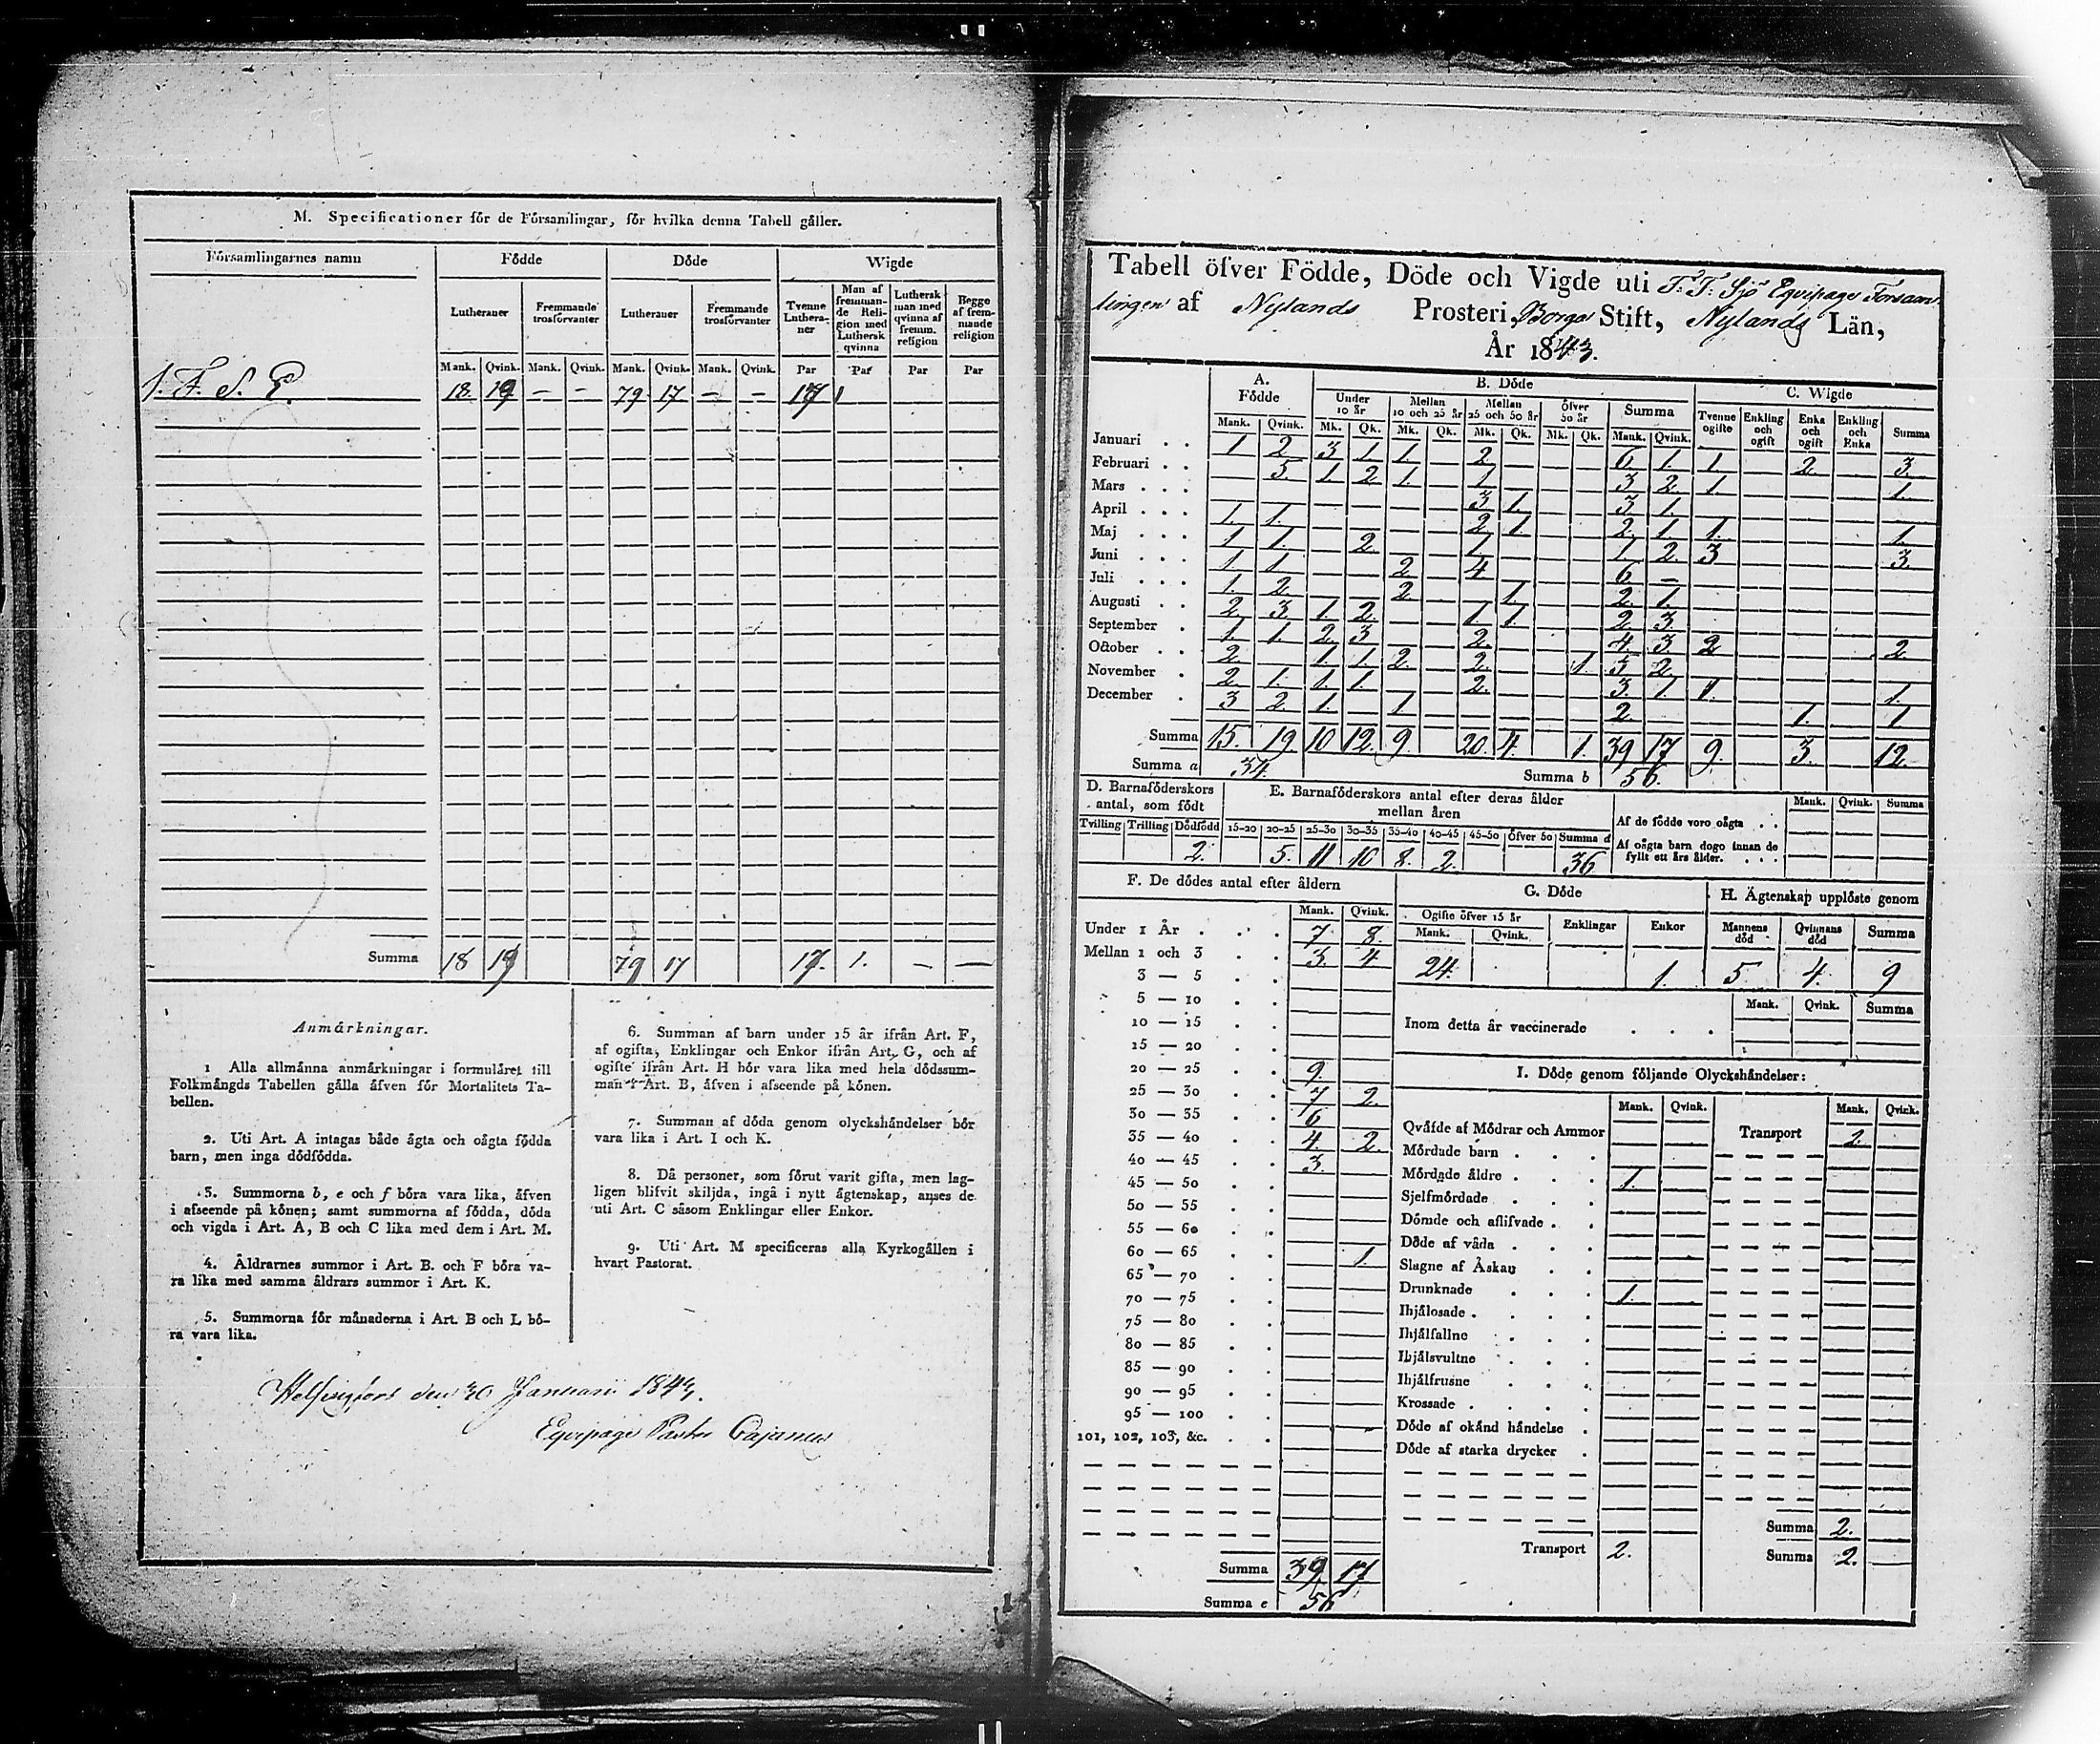 M. Specificationer för de Församlingar, för hvilka denna Tabell gäller.
Församlingarnes namn Födde Döde Wigde
Lutheraner Fremmande trosförvanter Lutheraner Fremmande trosförvanter Tvenne Lutheraner Man af fremmande Religion med Luthersk qvinna Luthersk man med qvinna af fremm. religion Begge af fremmande religion
Mank. Qvink. Mank. Qvink. Mank. Qvink. Mank. Qvink. Par Par Par Par
1. F. S. E. 18. 19 — — 79 17 — — 17 1
Summa 18 19 79 17 17. 1. — —
Anmärkningar.
1 Alla allmänna anmärkningar i formuläret till
Folkmängds Tabellen gälla äfven för Mortalitets Ta-
bellen.
2. Uti Art. A intagas både ägta och oägta födda
barn, men inga dödfödda.
3. Summorna b, e och f böra vara lika, äfven
i afseende på könen; samt summorna af födda, döda
och vigda i Art. A, B och C lika med dem i Art. M.
4. Åldrarnes summor i Art. B. och F böra va-
ra lika med samma åldrars summor i Art. K.
5. Summorna för månaderna i Art. B och L bö-
ra vara lika.
6. Summan af barn under 15 år ifrån Art. F,
af ogifta, Enklingar och Enkor ifrån Art. G, och af
ogifte ifrån Art. H bör vara lika med hela dödssum-
man i Art. B, äfven i afseende på könen.
7. Summan af döda genom olyckshändelser bör
vara lika i Art. I och K.
8. Då personer, som förut varit gifta, men lag-
ligen blifvit skiljda, ingå i nytt ägtenskap, anses de
uti Art. C såsom Enklingar eller Enkor.
9. Uti Art. M specificeras alla Kyrkogällen i
hvart Pastorat.
Helsingfors den 30 Januari 1843.
Equipage Pastor Cajanus
Tabell öfver Födde, Döde och Vigde uti F. F. Sjö Equipage Forsam
lingen af Nylands Prosteri, Borgå Stift, Nylands Län,
År 1843.
A. Födde B. Döde C. Wigde
Under 10 år Mellan 10 och 25 år Mellan 25 och 50 år Öfver 50 år Summa Tvenne ogifte Enkling och ogift Enka och ogift Enkling och Enka Summa
Mank. Qvink. Mk. Qk. Mk. Qk. Mk. Qk. Mk. Qk. Mank. Qvink.
Januari . . 1 2 3 1 1. 2. 6. 1. 1 2 3.
Februari . . 5. 1. 2 1. 1 3 2. 1. 1.
Mars . . . 3 1. 3. 1.
April . . . 1. 1. 2 1. 2. 1. 1. 1.
Maj . . . 1 1. 2. 1 1 2. 3 3.
Juni . . . 1. 1 2 4 6. —
Juli . . . 1. 2. 2. 1. 2. 1.
Augusti . . 2. 3 1. 2. 1 1 2. 3.
September . 1. 1. 2. 3 2. 4. 3. 2 2.
October . . 2. 1. 1. 2. 2. 1. 5 2.
November . 2. 1. 1. 1. 2. 3. 1. 1. 1.
December . 3 2. 1. 1. 2 1. 1
Summa 15. 19 10 12. 9. 20. 4. 1. 39 17 9. 3. 12.
Summa a 34. Summa b 56.
D. Barnaföderskors antal, som födt E. Barnaföderskors antal efter deras ålder mellan åren
Tvilling Trilling Dödfödd 15-20 20-25 25-30 30-35 35-40 40-45 45-50 Öfver 50 Summa d
2. 5. 11 10 8. 2. 36
Mank. Qvink. Summa
Af de födde voro oägta . .
Af oägta barn dogo innan de
fyllt ett års ålder. . . .
F. De dödes antal efter åldern
Mank. Qvink.
Under 1 År . . . 7 8.
Mellan 1 och 3 . . 3. 4
3 — 5 . .
5 — 10 . .
10 — 15 . .
15 — 20 . .
20 — 25 . . 9.
25 — 30 . . 7 2.
30 — 35 . . 6
35 — 40 . . 4 2.
40 — 45 . . 3.
45 — 50 . .
50 — 55 . .
55 — 60 . .
60 — 65 . . 1.
65 — 70 . .
70 — 75 . .
75 — 80 . .
80 — 85 . .
85 — 90 . .
90 — 95 . .
95 — 100 . .
101, 102, 103, &c. . .
Summa 39 17
Summa e 56
G. Döde H. Ägtenskap upplöste genom
Ogifte öfver 15 år Enklingar Enkor Mannens död Qvinnans död Summa
Mank. Qvink.
24. 1. 5. 4. 9
Mank. Qvink. Summa
Inom detta år vaccinerade . . .
I. Döde genom följande Olyckshändelser:
Mank. Qvink. Mank. Qvink.
Qväfde af Mödrar och Ammor Transport 2.
Mördade barn . . .
Mördade äldre . . . 1.
Sjelfmördade . .
Dömde och aflifvade . .
Döde af våda . . .
Slagne af Åskan . .
Drunknade . . . 1.
Ihjälosade . . . .
Ihjälfallne . . .
Ihjälsvultne . . .
Ihjälfrusne . . .
Krossade . . . .
Döde af okänd händelse .
Döde af starka drycker .
Summa 2.
Transport 2. Summa 2. —